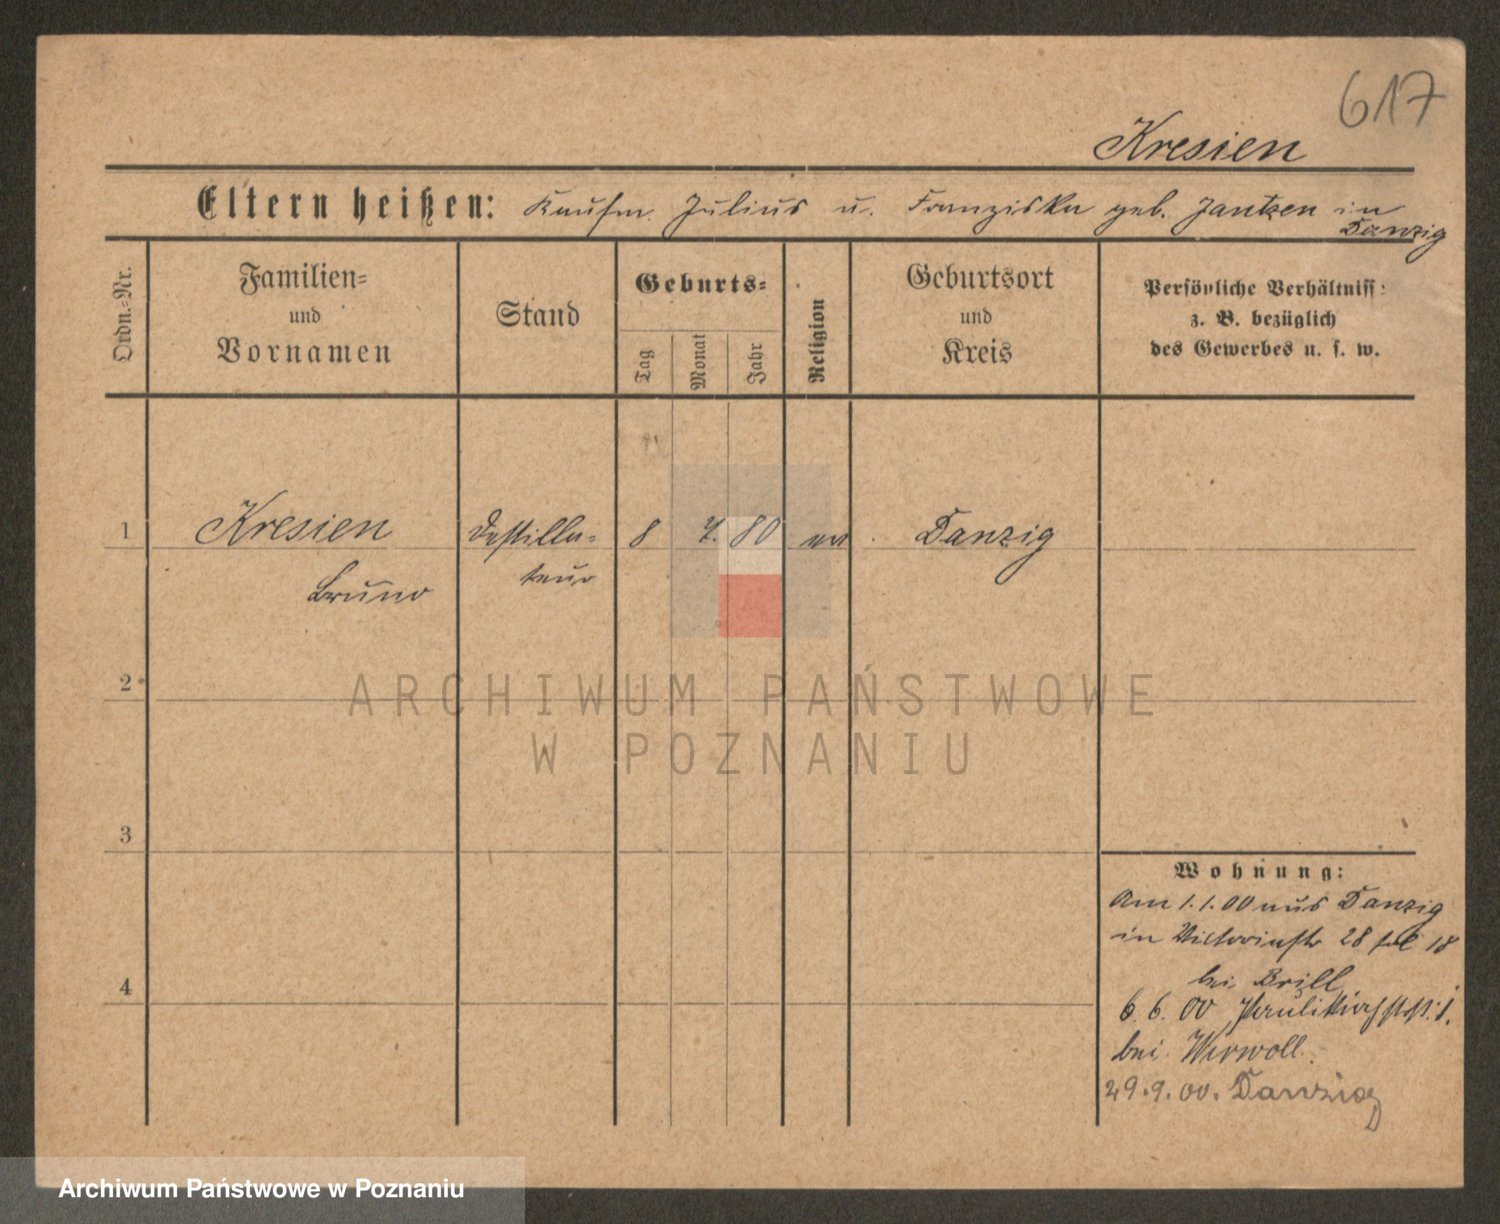 617
Kresien
Eltern heißen: Kaufm. Julius u. Franziska geb. Jantzen in
Danzig
Ordn.-Nr.
Familien-
und
Vornamen
Stand
Geburts-
Tag
Monat
Jahr
Religion
Geburtsort
und
Kreis
Persönliche Verhältniss
z. B. bezüglich
des Gewerbes u. s. w.
1 Kresien Destilla- 8 7. 80 ev. Danzig
Bruno teur
2
ARCHIWUM PAŃSTWOWE
W POZNANIU
3
4
Wohnung:
Am 1.1.00 aus Danzig
in Victoriastr 28 18
bei Brill
6. 6. 00 Paulikirchstr. 1.
bei
29.9.00. Danzig
Archiwum Państwowe w Poznaniu